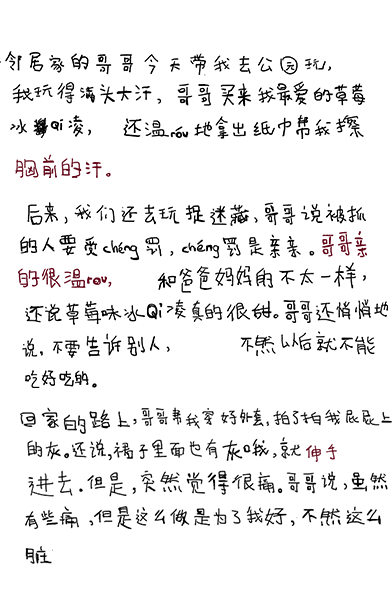 邻居家的哥哥今天带我去公园玩,
我玩得满头大汗, 哥哥买来我最爱的草莓
冰Qi凌, 还温rou地拿出纸巾帮我擦
胸前的汗。
后来,我们还去玩捉迷藏,哥哥说被抓
的人要受chéng罚,chéng罚是亲亲。哥哥亲
的很温rou, 和爸爸妈妈的不太一样,
还说草莓味冰Qi凌真的很甜。哥哥还悄悄地
说,不要告诉别人, 不然以后就不能
吃好吃的。
回家的路上,哥哥帮我穿好外套,拍了拍我屁屁上
的灰。还说,裙子里面也有灰哦,就伸手
进去.但是,突然觉得很痛。哥哥说,虽然
有些痛,但是这么做是为了我好,不然这么
脏